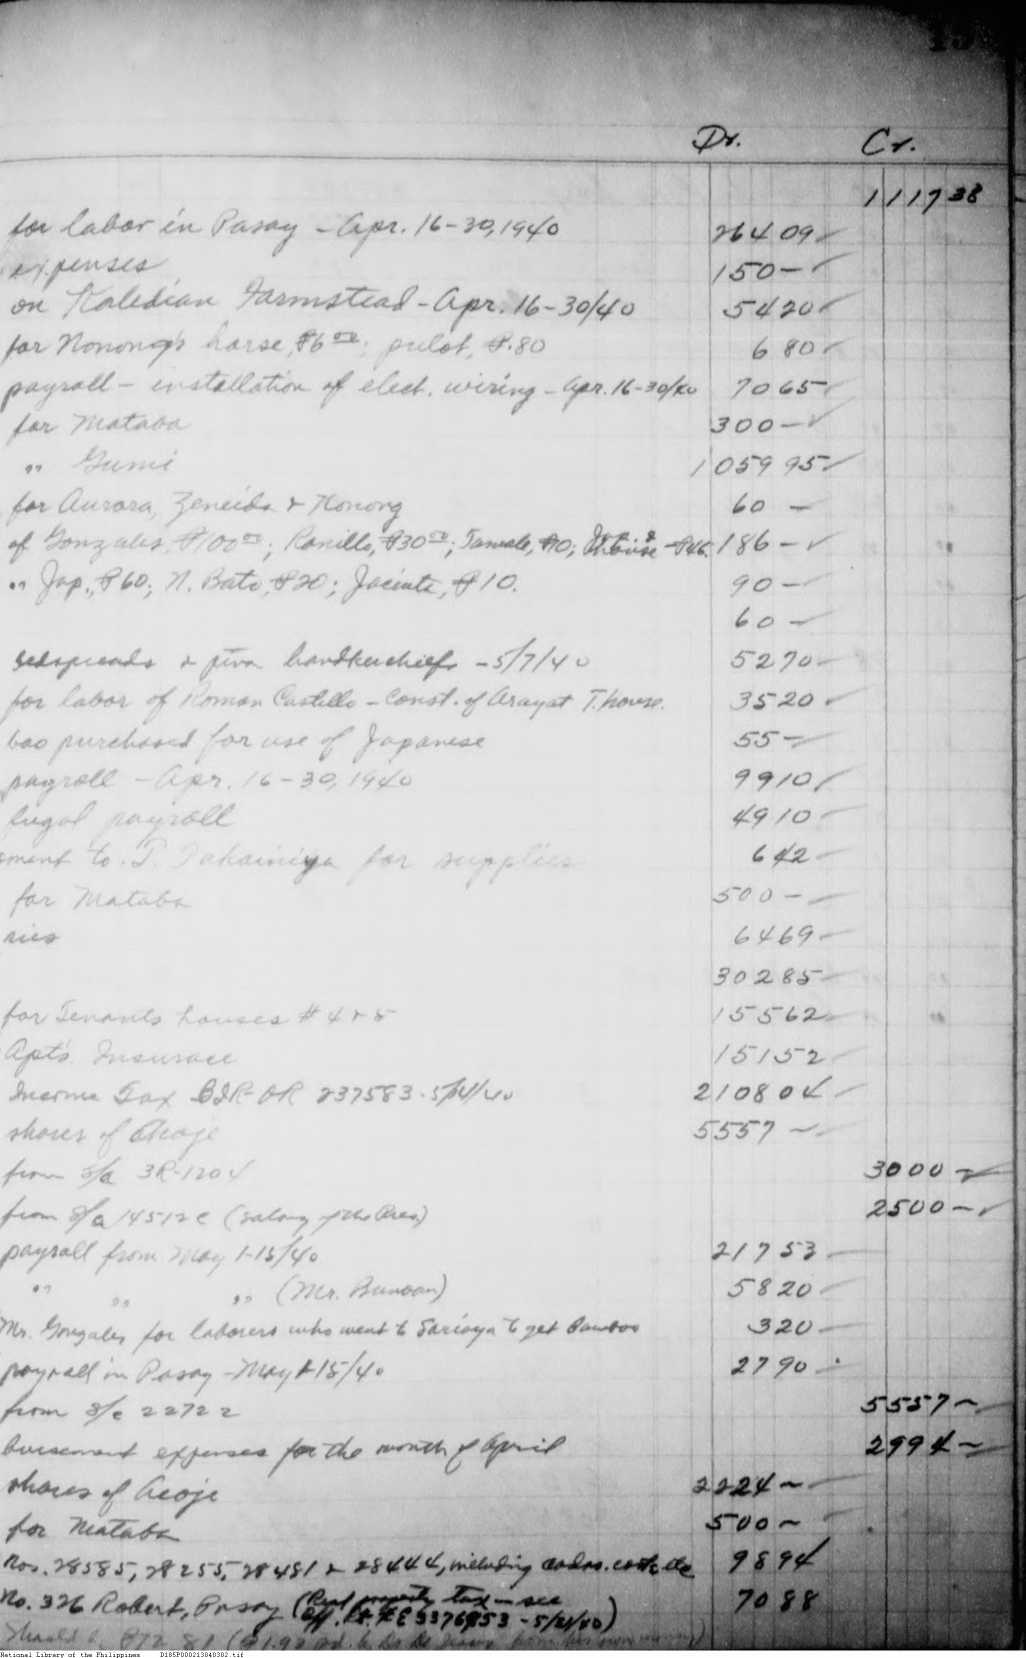 Dr. Cr.
1117 38
for labor in Pasay - Apr. 16-30, 1940 264 09
expenses 150 -
on Kaledian Farmstead - Apr. 16-30/40 54 20
for Nonong's horse, ₱6 00; pulot, ₱.80 6 80
payroll - installation of elect. wiring - Apr. 16-30/40 70 65
for Mataba 300 -
" Gumi 1059 95
for Aurora, Zeneida & Nonong 60 -
of Gonzales, ₱100 00; Ranillo, ₱30 00; ₱10; ₱46. 186 -
" Jap., ₱60; N. Bato, ₱20; Jacinta, ₱10. 90 -
60 -
bedspreads & piña handkerchiefs - 5/7/40 52 70
for labor of Roman Castillo - Const. of Arayat T. house. 35 20
boo purchased for use of Japanese 55 -
payroll - Apr. 16-30, 1940 99 10
lugal payroll 49 10
ment to T. for supplies 6 42
for Mataba 500 -
ries 64 69
302 85
for Tenants houses # 4 & 5 155 62
Apt's Insurace 151 52
Income Tax BIR-OR 237583 - 5/14/40 2108 04
shares of Acoje 5557 -
from S/a 3R-1204 3000 -
from S/a 14512C 2500 -
payroll from May 1-15/40 217 53
" " " (Mr. Bunoan) 58 20
Mr. Gonzales for laborers who went to Sariaya to get bamboo 3 20
payroll in Pasay - May 1-15/40 27 90
from S/c 22722 5557 -
bursement expenses for the month of April 2994 -
shares of Acoje 2224 -
for Mataba 500 -
Nos. 28585, 28255, 28481 & 28444, including 98 94
No. 326 Robert, Pasay (Real property tax - see 70 88
Off. Rt. # E3376853 - 5/21/40)
National Library of the Philippines D185P000213040302.tif